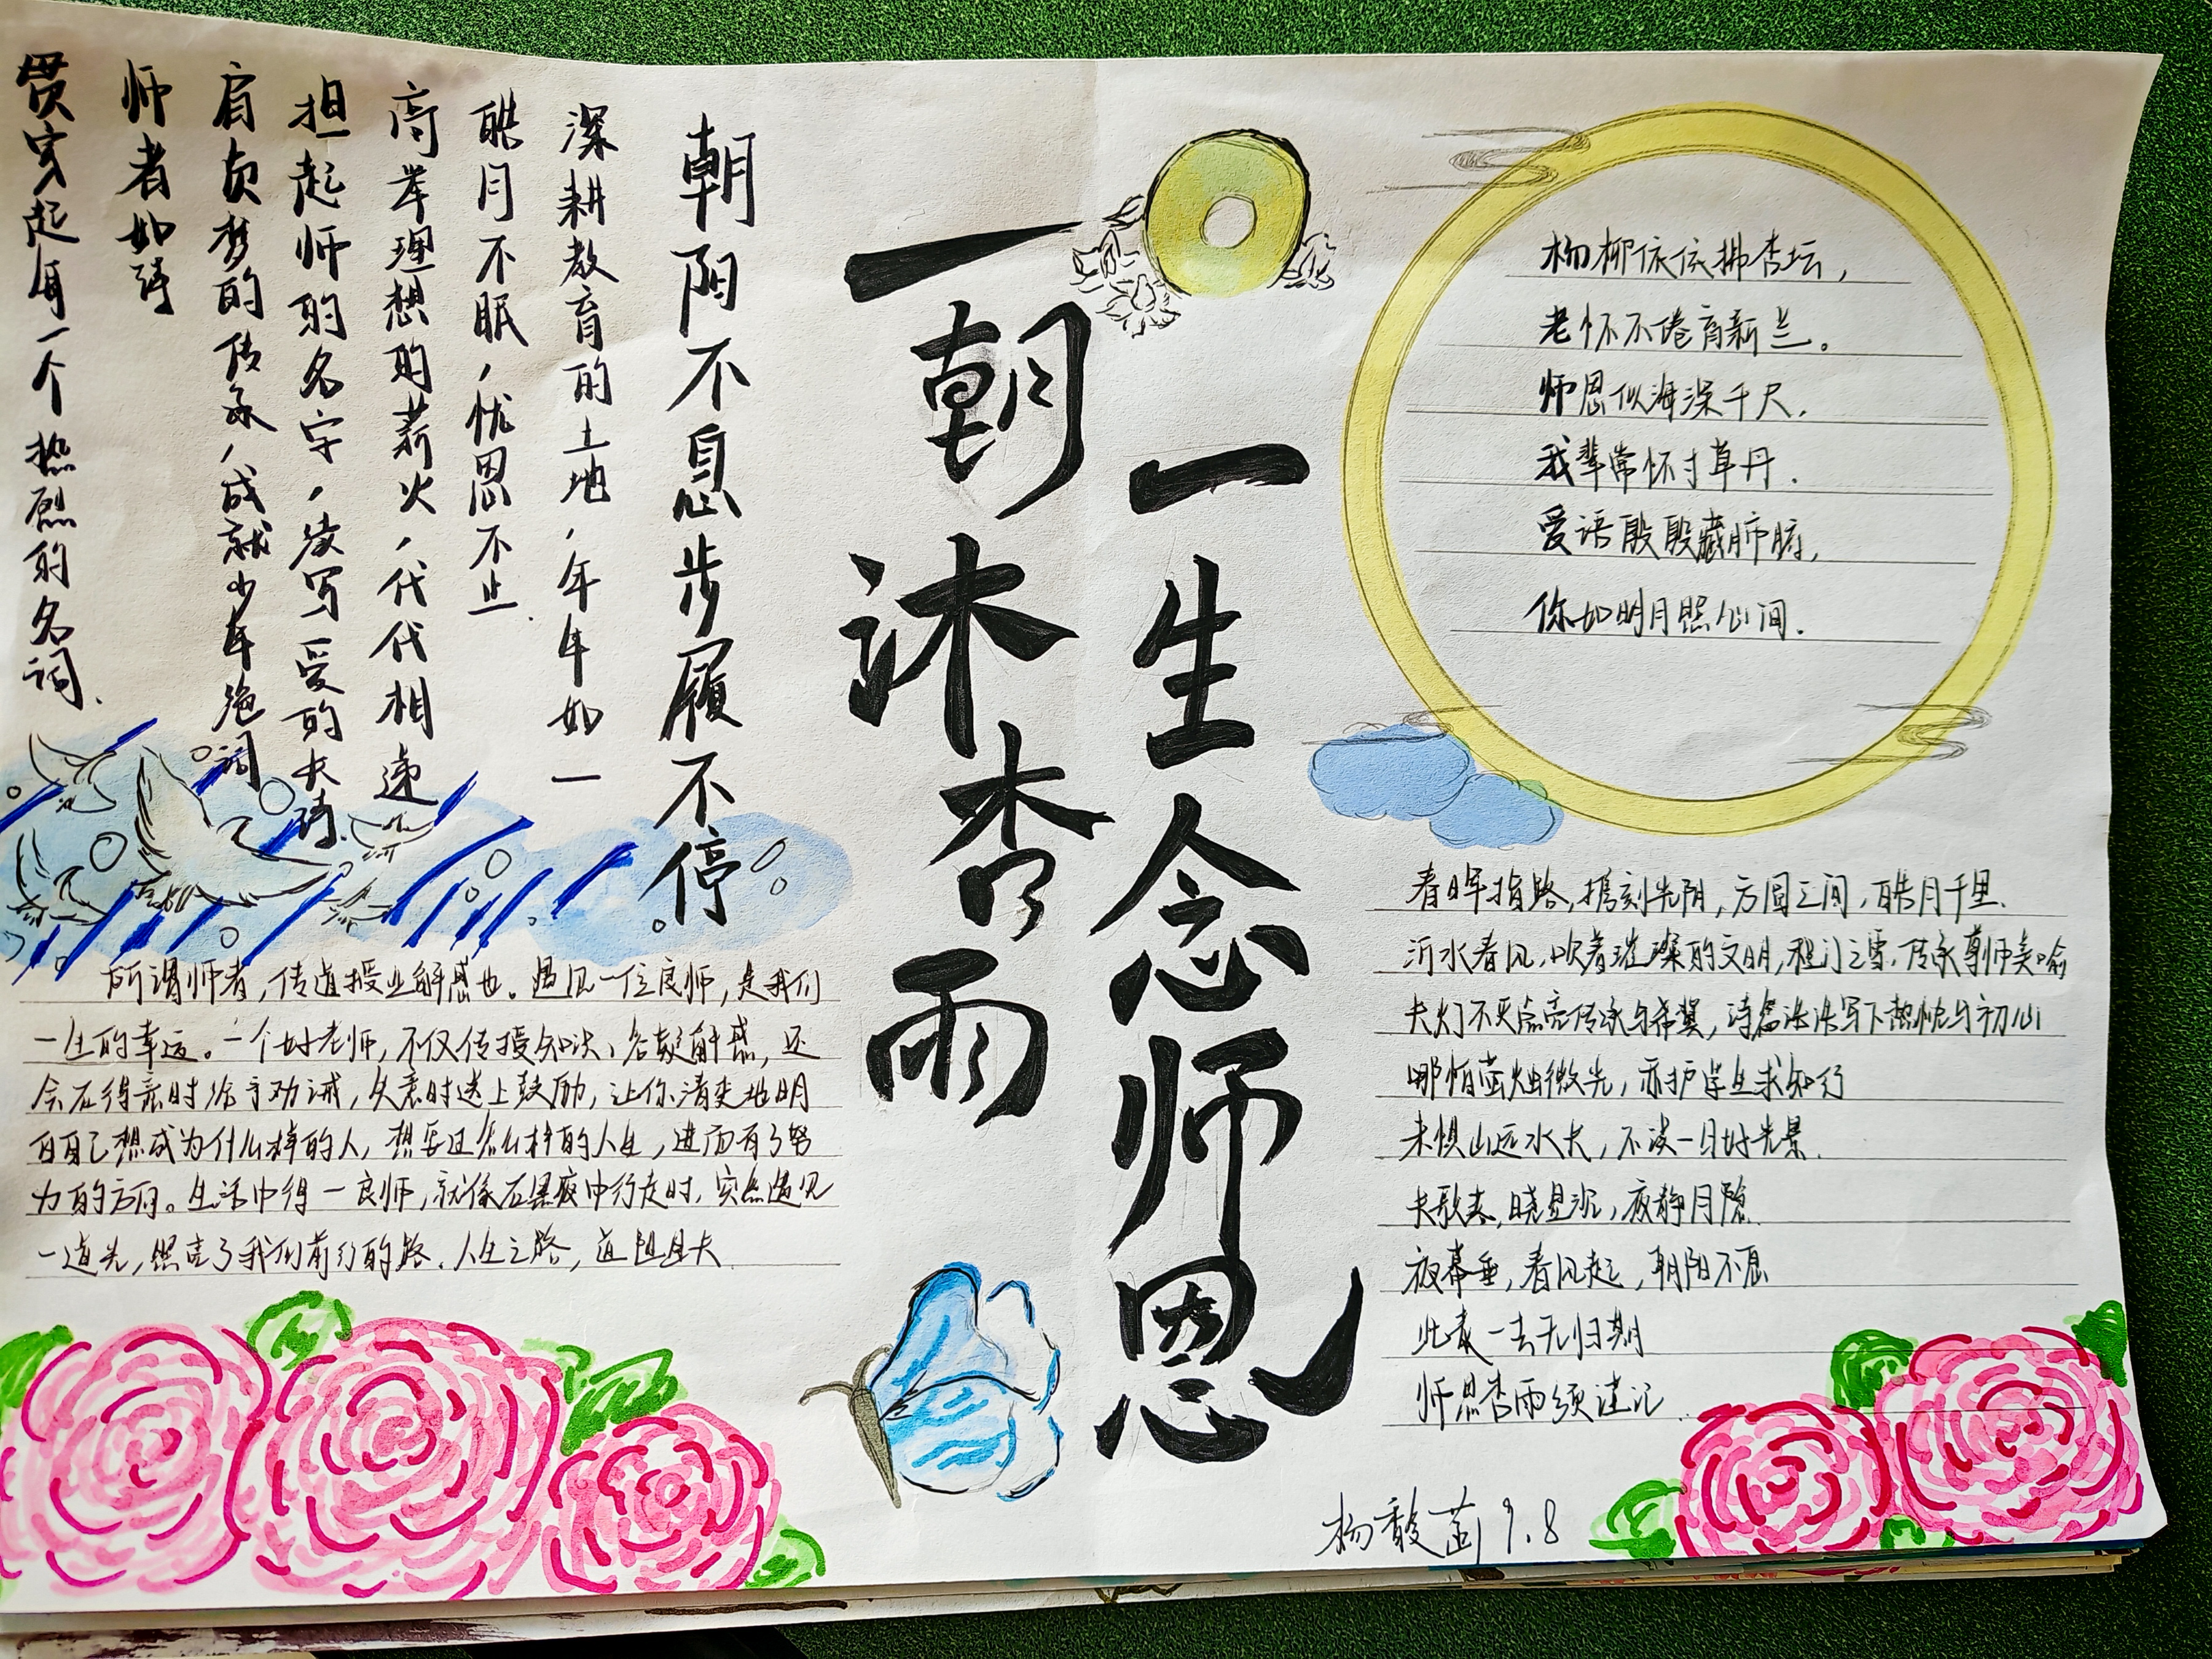 一朝沐杏雨
一生念师恩
朝阳不息步履不停
深耕教育的土地，年年如一
皓月不眠，忧思不止.
高举理想的薪火，代代相递
担起师的名字，续写爱的长诗.
肩负梦的传承，成就少年绝词
师者如诗
贯穿起每一个热烈的名词.
所谓师者，传道授业解惑也。遇见一位良师，是我们
一生的幸运。一个好老师，不仅传授知识、答疑解惑，还
会在得意时给予劝诫，失意时送上鼓励，让你清楚地明
白自己想成为什么样的人，想要过怎么样的人生，进而有了努
力的方向。生活中得一良师，就像在黑夜中行走时，突然遇见
一道光，照亮了我们前行的路.人生之路，道阻且长.
杨柳依依拂杏坛，
老怀不倦育新兰。
师恩似海深千尺，
我辈常怀寸草丹.
爱语殷殷藏肺腑，
你如明月照心间.
春晖指路，携刻光阴，方圆之间，皓月千里.
沂水春风，吹着璀璨的文明，程门之雪，传承尊师美喻
长灯不灭点亮传承与希冀，诗篇浩浩写下热忱与初心
哪怕萤烛微光，亦护学生求知行
未惧山远水长，不误一日好光景.
长歌来，晓星沉，夜静月隐.
夜幕垂，春风起，朝阳不息
此去一去无归期
师恩杏雨须谨记.
杨馥菡 9.8